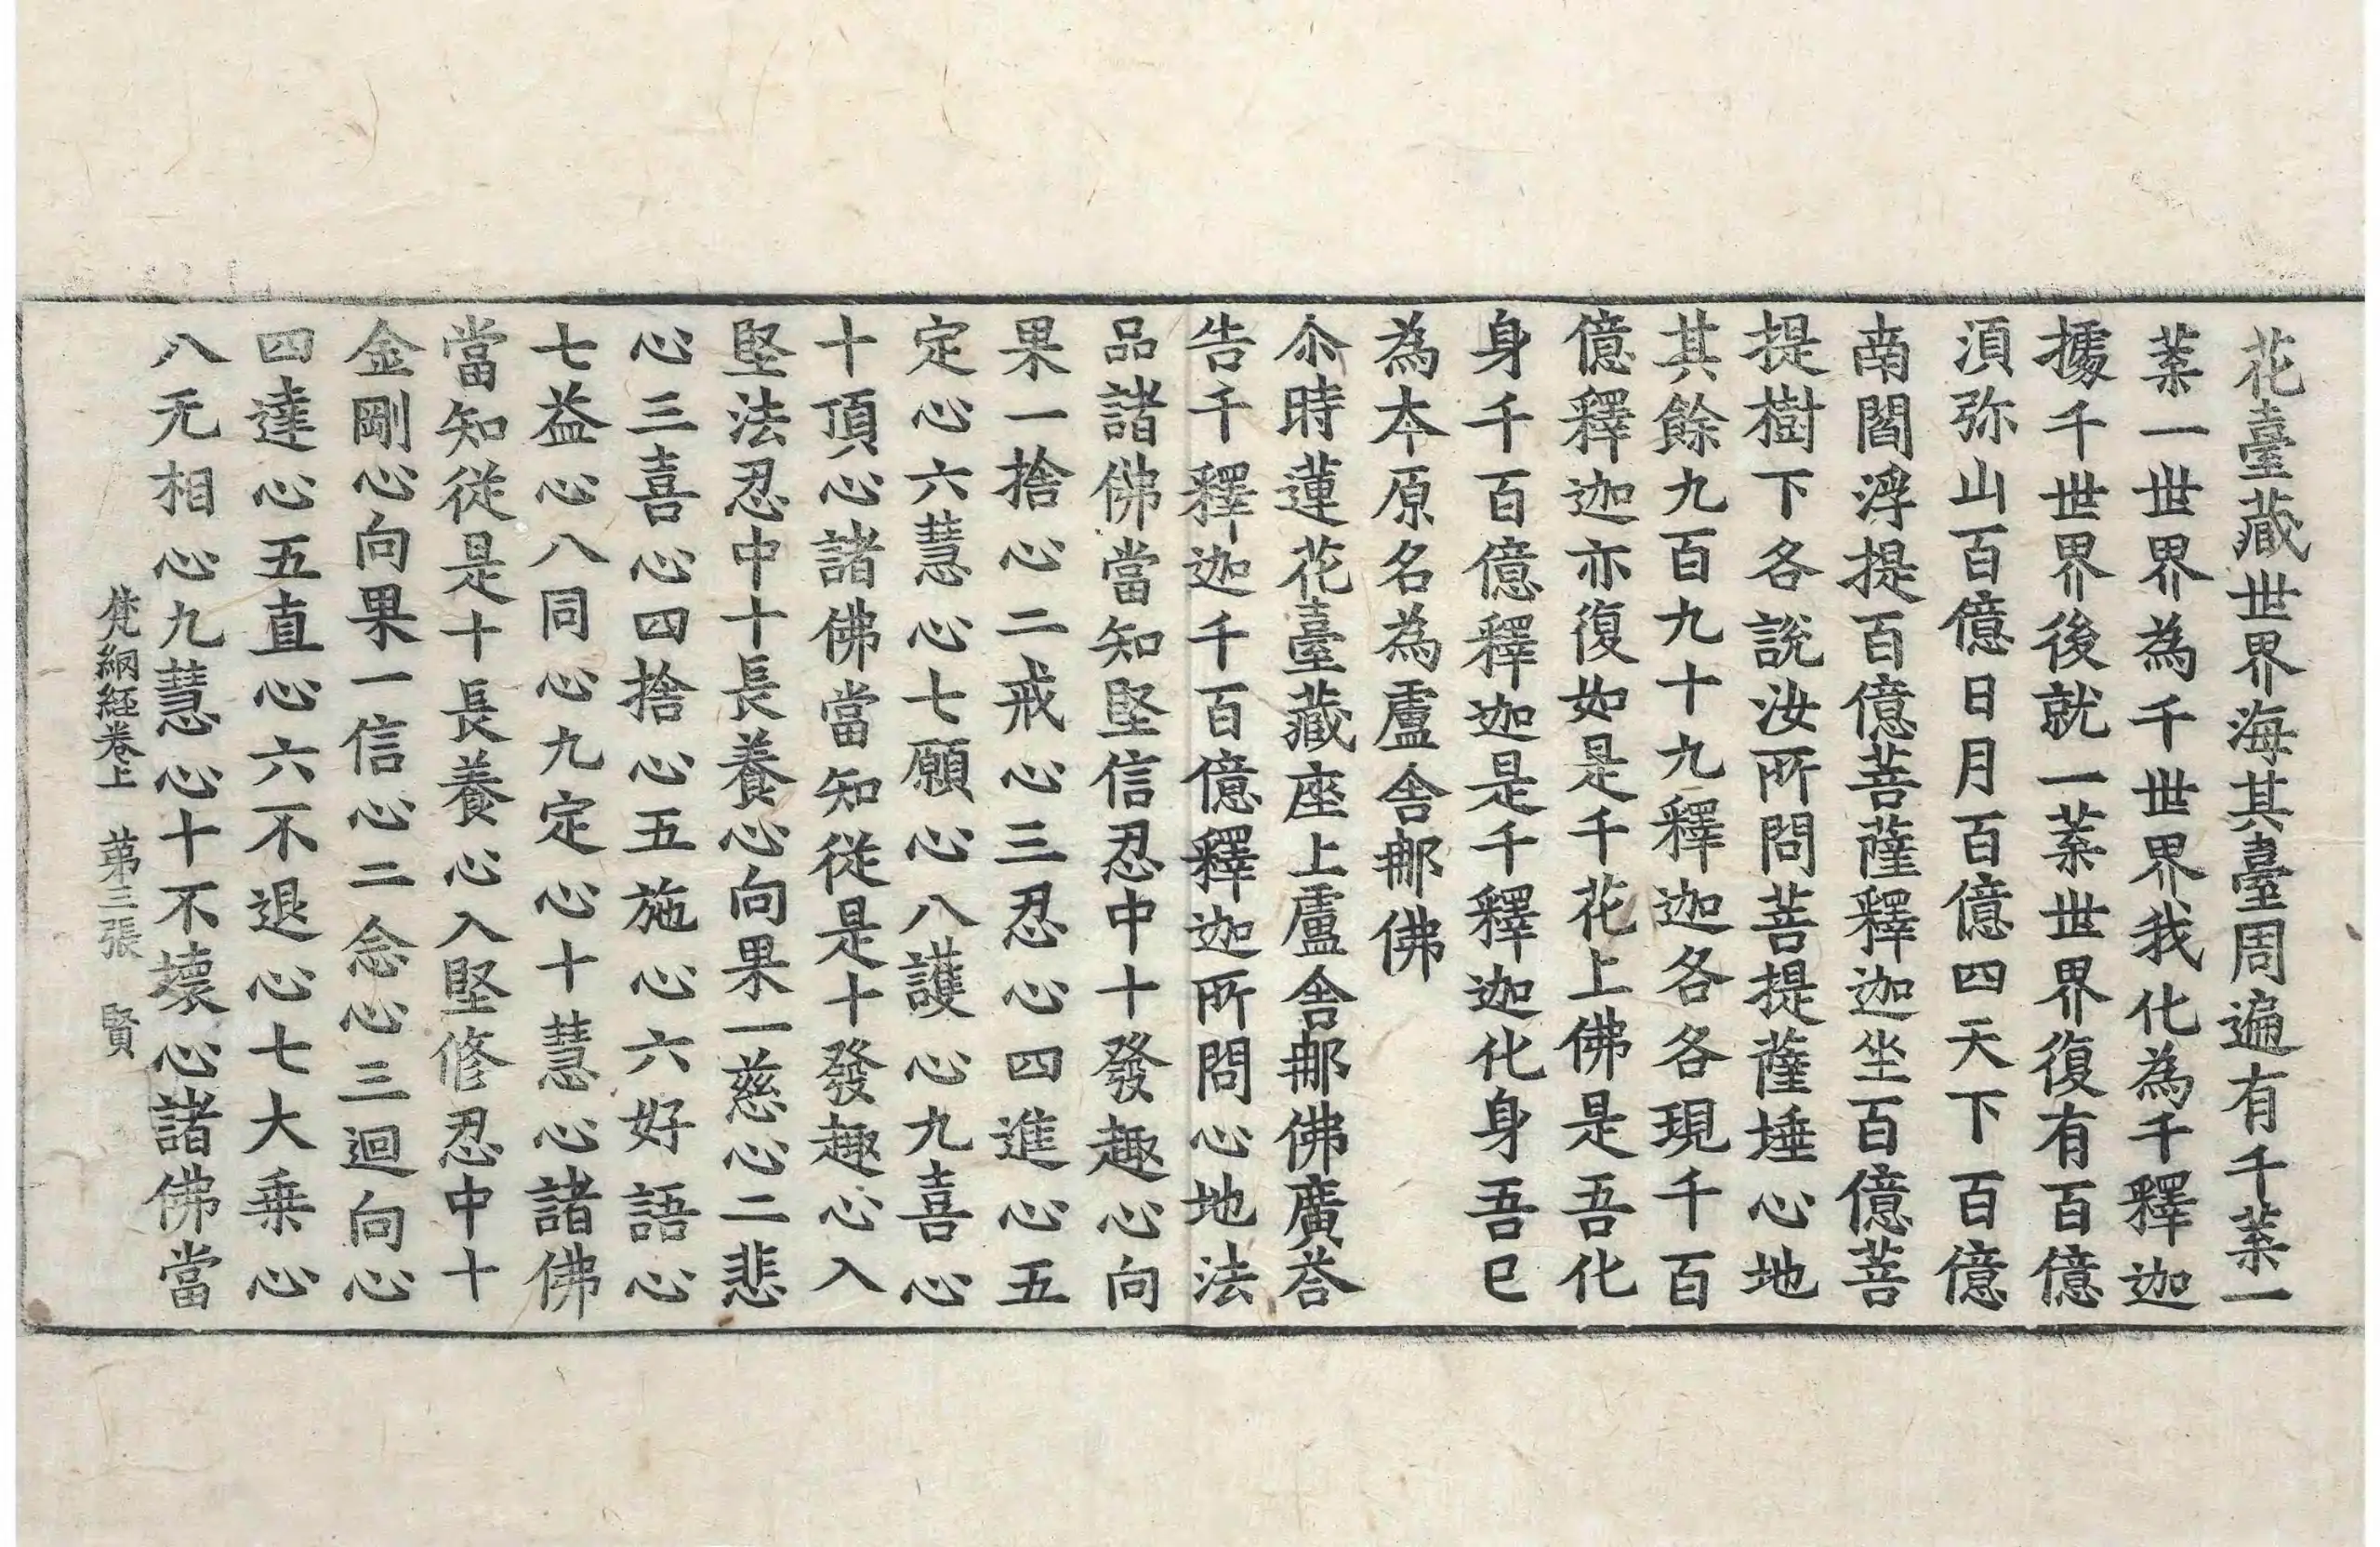 花臺藏世界海其臺周遍有千葉一
葉一世界為千世界我化為千釋迦
據千世界後就一葉世界復有百億
湏弥山百億日月百億四天下百億
南閻浮提百億菩薩釋迦坐百億菩
提樹下各說汝所問菩提薩埵心地
其餘九百九十九釋迦各各現千百
億釋迦亦復如是千花上佛是吾化
身千百億釋迦是千釋迦化身吾已
為本原名為盧舍那佛
尒時蓮花臺藏座上盧舍那佛廣荅
告千釋迦千百億釋迦所問心地法
品諸佛當知堅信忍中十發趣心向
果一捨心二戒心三忍心四進心五
定心六慧心七願心八護心九喜心
十頂心諸佛當知從是十發趣心入
堅法忍中十長養心向果一慈心二悲
心三喜心四捨心五施心六好語心
七益心八同心九定心十慧心諸佛
當知從是十長養心入堅修忍中十
金剛心向果一信心二念心三迴向心
四達心五直心六不退心七大乗心
八无相心九慧心十不壞心諸佛當
梵網経卷上　苐三張　賢